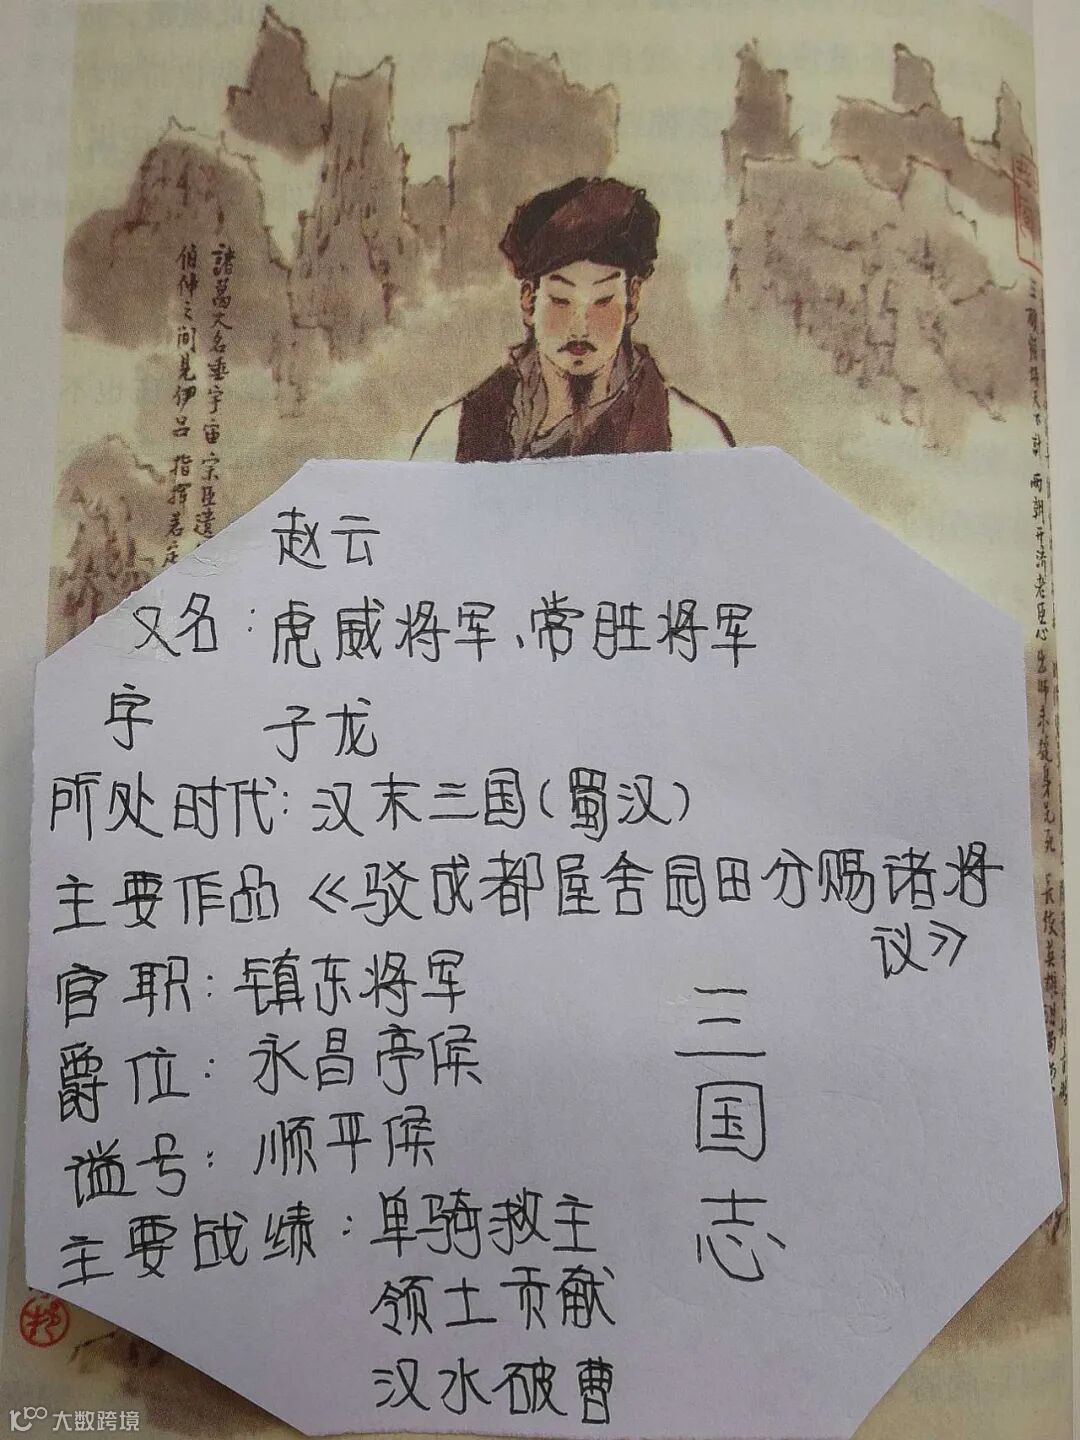 諸葛大名垂宇宙宗臣遺
伯仲之間見伊呂指揮若定
三顧頻煩天下計兩朝開濟老臣心出師未捷身先死長使英雄淚
赵云
又名：虎威将军、常胜将军
字 子龙
所处时代：汉末三国（蜀汉）
主要作品《驳成都屋舍园田分赐诸将
议》
官职：镇东将军
爵位：永昌亭侯
谥号：顺平侯
主要战绩：单骑救主
领土贡献
汉水破曹
三国志
大数跨境